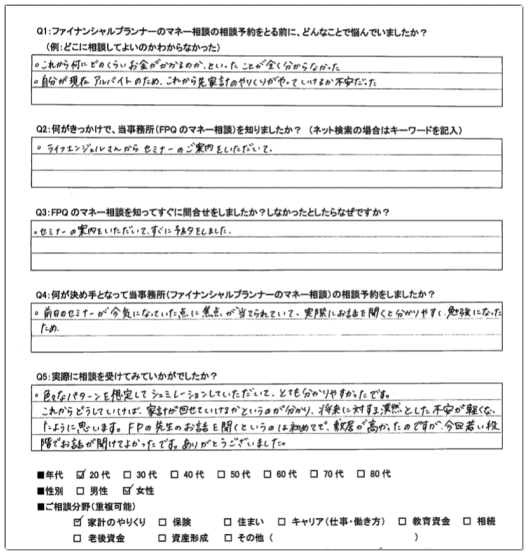 Q1:ファイナンシャルプランナーのマネー相談の相談予約をとる前に、どんなことで悩んでいましたか？
(例:どこに相談してよいのかわからなかった)
○これから何にどのくらいお金がかかるのか、といったことが全く分からなかった
○自分が現在アルバイトのため、これから先家計のやりくりがやっていけるか不安だった
Q2:何がきっかけで、当事務所(FPQのマネー相談)を知りましたか？ (ネット検索の場合はキーワードを記入)
○ライフエンジェルさんからセミナーのご案内をいただいて。
Q3:FPQのマネー相談を知ってすぐに問合せをしましたか？しなかったとしたらなぜですか？
○セミナーの案内をいただいて、すぐに予約をしました。
Q4:何が決め手となって当事務所(ファイナンシャルプランナーのマネー相談)の相談予約をしましたか？
○前日のセミナーが今気になっていた点に焦点が当てられていて、実際にお話を聞くと分かりやすく、勉強になった
ため。
Q5:実際に相談を受けてみていかがでしたか？
○色々なパターンを想定してシュミレーションしていただいて、とても分かりやすかったです。
これからどうしていけば、家計が回せていけるかというのが分かり、将来に対する漠然とした不安が軽くなっ
たように思います。FPの先生のお話を聞くというのは初めてで、敷居が高かったのですが、今回若い段
階でお話が聞けてよかったです。ありがとうございました。
■年代 ☑20代 □30代 □40代 □50代 □60代 □70代 □80代
■性別 □男性 ☑女性
■ご相談分野(重複可能)
☑家計のやりくり □保険 □住まい □キャリア(仕事・働き方) □教育資金 □相続
□老後資金 □資産形成 □その他( )